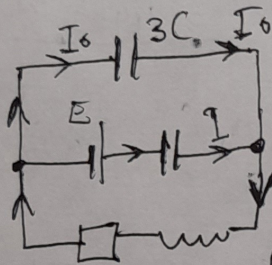 I₀ 3C I₀
E I